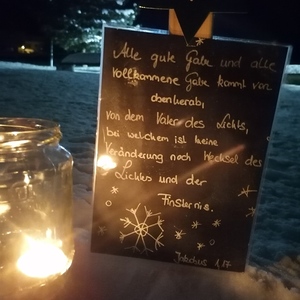 Alle gute Gabe und alle
vollkommene Gabe kommt von
obenherab,
von dem Vater des Lichts,
bei welchem ist keine
Veränderung noch Wechsel des
Lichtes und der
Finsternis.
Jakobus 1,17